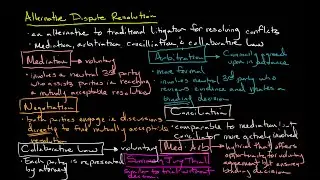 Alternative Dispute Resolution
- an alternative to traditional litigation for resolving conflicts
- Mediation, arbitration, conciliation & collaborative law
Mediation → voluntary
- involves a neutral 3rd party who assists parties in reaching a mutually acceptable resolution
Arbitration → Commonly agreed upon in advance
- more formal
- involves neutral 3rd party who reviews evidence and makes a binding decision
Negotiation
- both parties engage in discussions directly to find mutually acceptable resolution
Conciliation
- comparable to mediation but conciliator more actively involved
Collaborative Law → voluntary
- Each party is represented by attorney
Summary Jury Trial
similar to trial without decision
Med-Arb → hybrid that offers opportunity for voluntary agreement but ensures binding decision